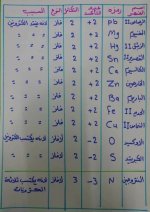 العنصر رمزه عدد التأكسد التكافؤ النوع السبب
الرصاص II Pb +2 2 فلز لأنه يفقد الكترونين
المغنسيوم Mg +2 2 فلز " " "
الزئبق II Hg +2 2 فلز " " "
القصدير II Sn +2 2 فلز " " "
الكالسيوم Ca +2 2 فلز " " "
الخارصين Zn +2 2 فلز " " "
الباريوم Ba +2 2 فلز " " "
الحديد II Fe +2 2 فلز " " "
النحاس II Cu +2 2 فلز " " "
الاوكسجين O -2 2 لافلز لانه يكتسب الكترونين
الكبريت S -2 2 لافلز " " "
النتروجين N -3 3 لافلز لانه يكتسب ثلاثة الكترونات